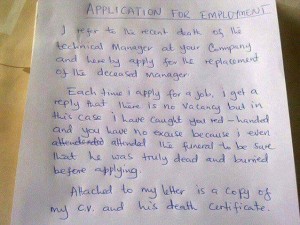 APPLICATION FOR EMPLOYMENT
I refer to the recent death of the
technical Manager at your Company
and hereby apply for the replacement
of the deceased manager.
Each time i apply for a job, I get a
reply that there is no vacancy but in
this case i have caught you red-handed
and you have no excuse because i even
attended the funeral to be sure
that he was truly dead and burried
before applying.
Attached to my letter is a copy of
my c.v. and his death certificate.